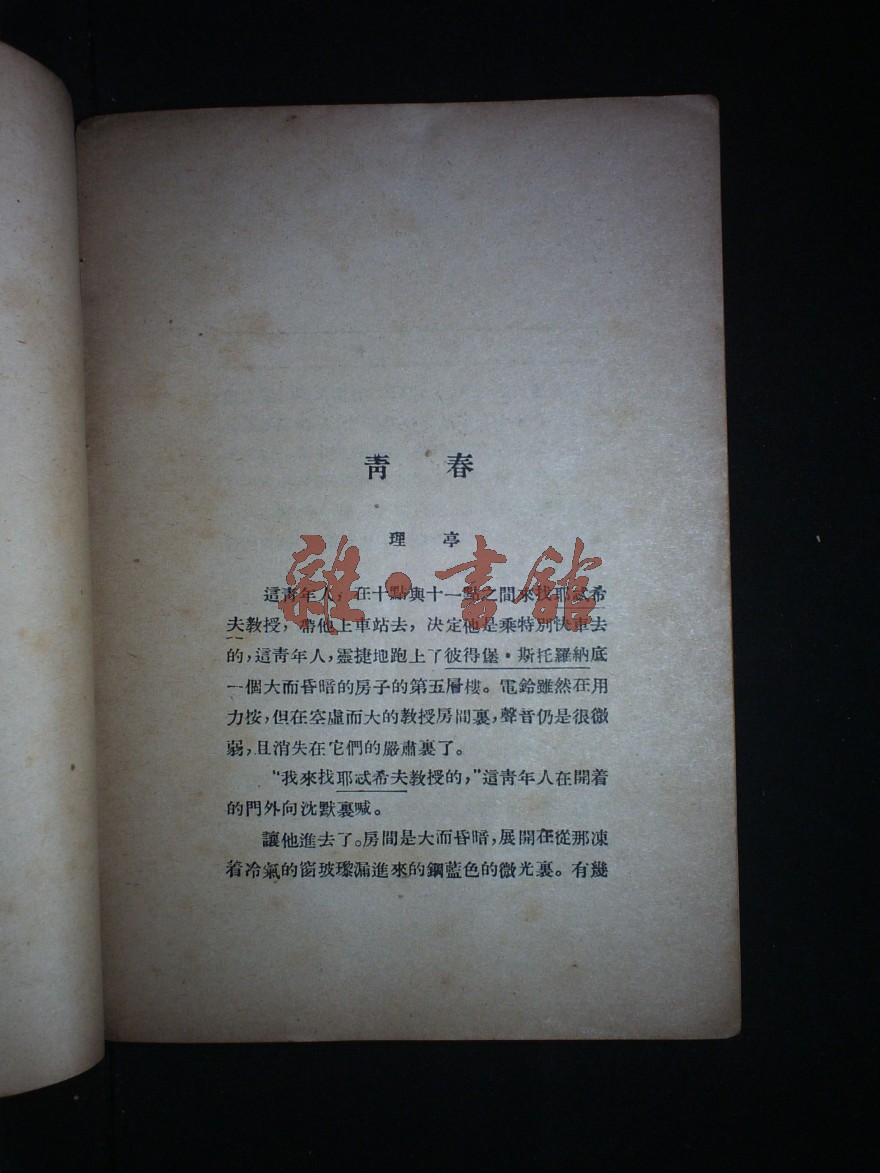 青春
理亭
雜·書館
這青年人，在十點與十一點之間來找耶忒希
夫教授，帶他上車站去，決定他是乘特別快車去
的，這青年人，靈捷地跑上了彼得堡·斯托羅納底
一個大而昏暗的房子的第五層樓。電鈴雖然在用
力按，但在空虛而大的教授房間裏，聲音仍是很微
弱，且消失在它們的嚴肅裏了。
“我來找耶忒希夫教授的，”這青年人在開着
的門外向沈默裏喊。
讓他進去了。房間是大而昏暗，展開在從那凍
着冷氣的窗玻瓈漏進來的鋼藍色的微光裏。有幾